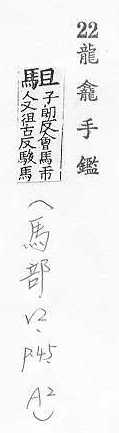 22龍龕手鑑
駔子朗反會馬市
人又徂古反駿馬
(馬部 V2. P.45. A2)